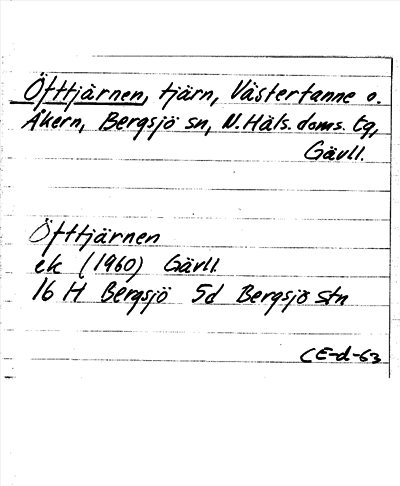 Öfttjärnen, tjärn, Västertanne o.
Åkern, Bergsjö sn, N.Häls. doms. tg,
Gävll.
Öfttjärnen
ek (1960) Gävll.
16 H Bergsjö 5d Bergsjö stn
CE-d-63